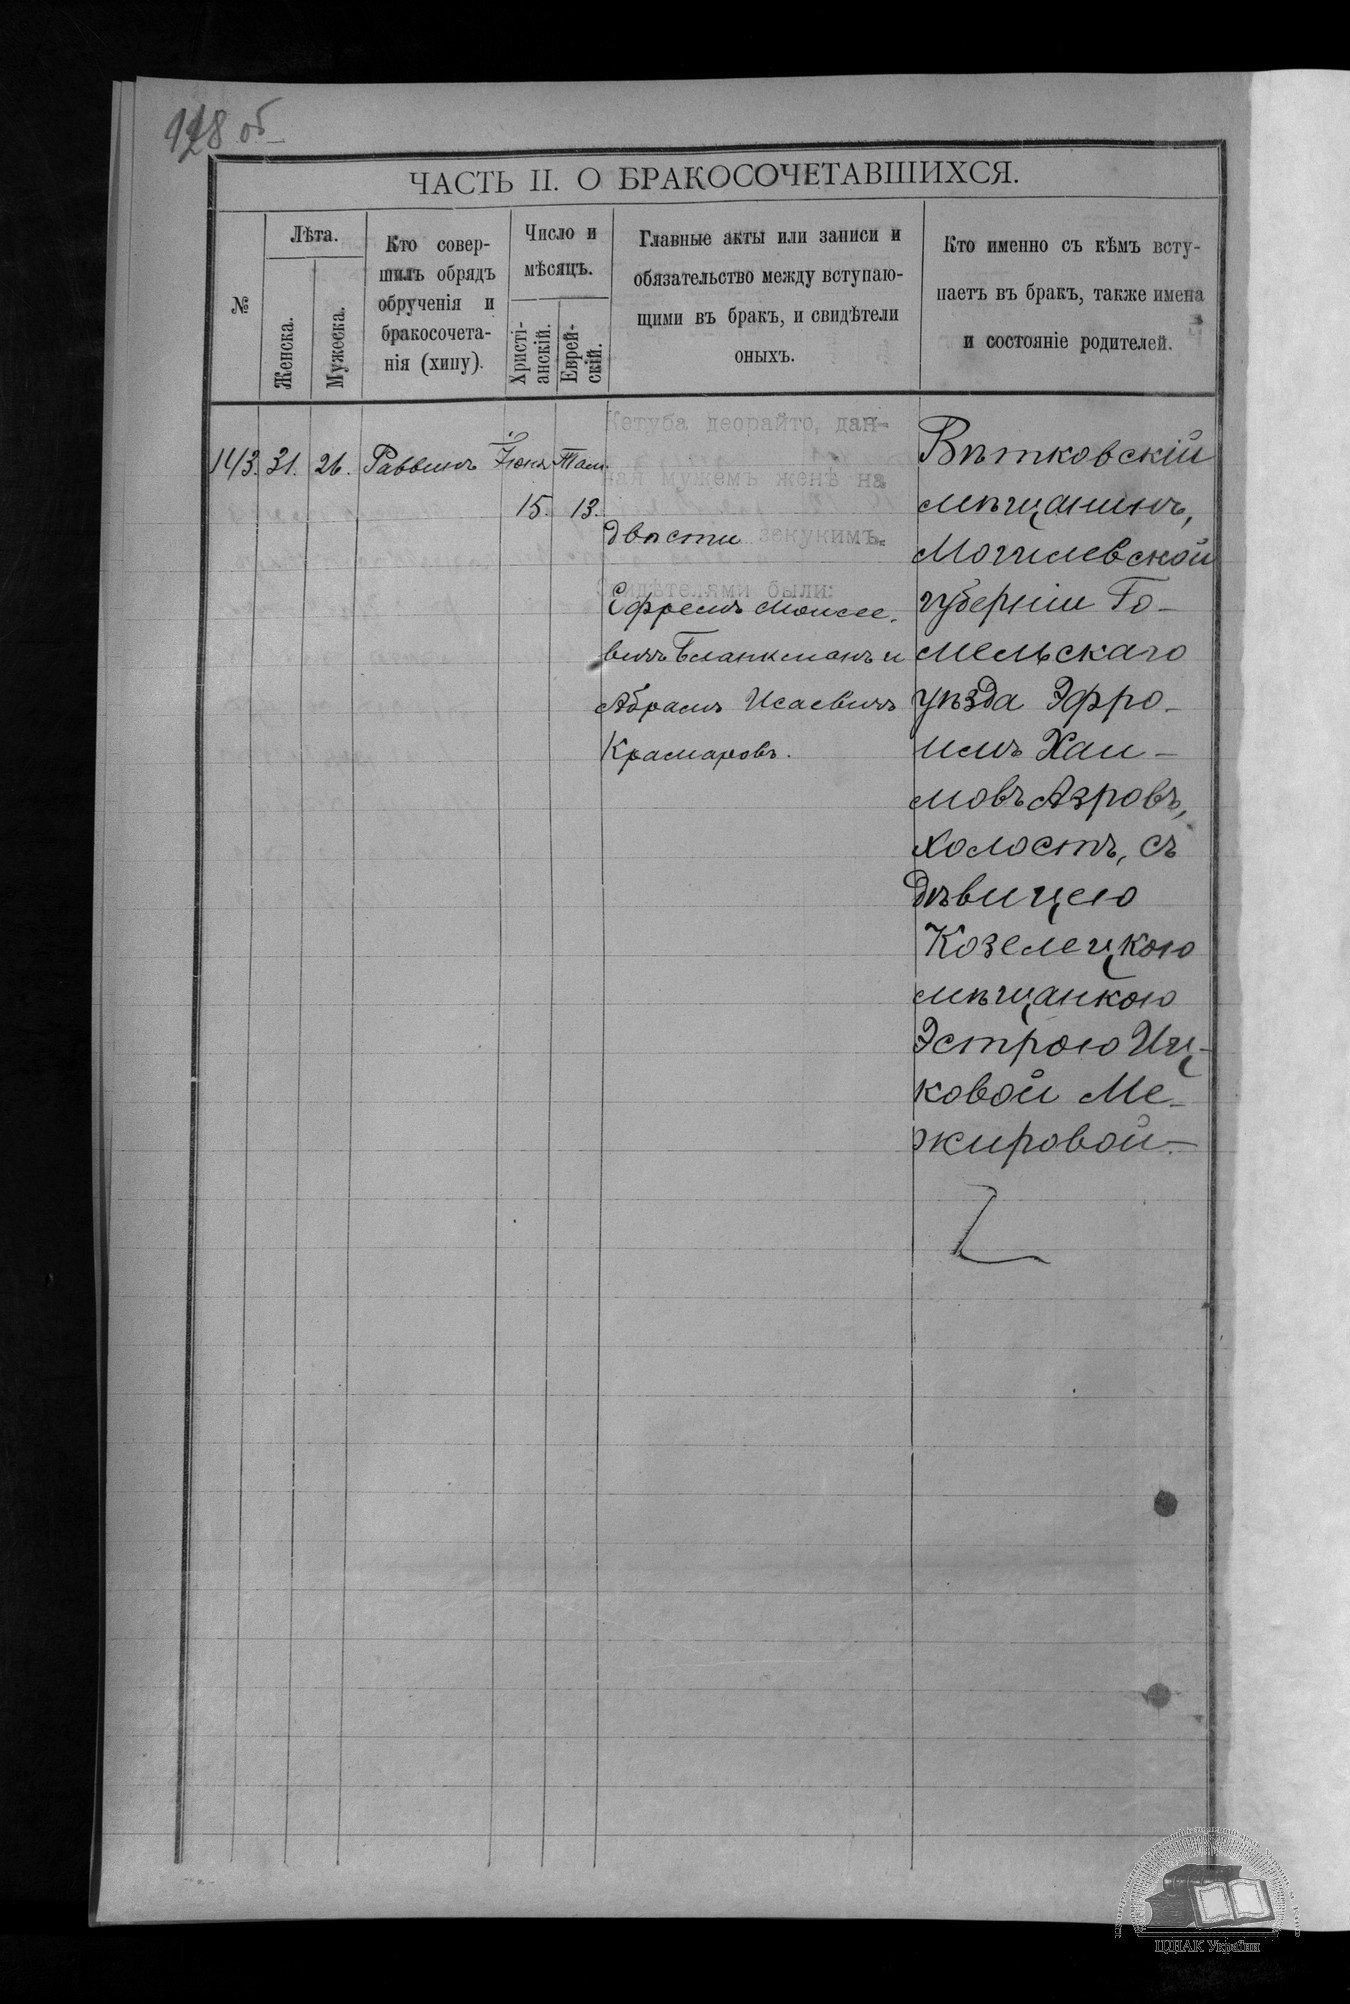 128 об
ЧАСТЬ II. О БРАКОСОЧЕТАВШИХСЯ.
№
Лѣта.
Женска.
Мужеска.
Кто совер-
шилъ обрядъ
обрученія и
бракосочета-
нія (хипу).
Число и
мѣсяцъ.
Христі-
анскій.
Еврей-
скій.
Главные акты или записи и
обязательство между вступаю-
щими въ бракъ, и свидѣтели
оныхъ.
Кто именно съ кѣмъ всту-
паетъ въ бракъ, также имена
и состояніе родителей.
143.
31.
26.
Раввинъ
Іюня
15.
Там.
13.
Кетуба деорайто, дан-
ная мужемъ женѣ на
двѣсти зекукимъ.
Свидѣтелями были:
Ефремъ Моисее-
вичъ Бланкманъ и
Абрамъ Исаевичъ
Крамаровъ.
Вѣтковскій
мѣщанинъ,
Могилевской
губерніи Го-
мельскаго
уѣзда Эфро-
имъ Хаи-
мовъ Азровъ,
холостъ, съ
дѣвицею
Козелецкою
мѣщанкою
Эстрою Иц-
ковой Ме-
жировой.
ЦДІАК України